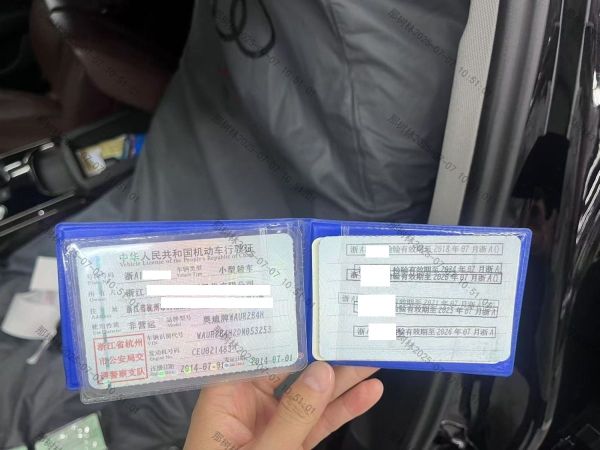 中华人民共和国机动车行驶证
Vehicle License of the People's Republic of China
浙A 车辆类型 小型轿车
浙江 有限公司
浙江省杭州
使用性质 非营运 品牌型号 奥迪牌WAURZ84H
浙江省杭州
市公安局交
通警察支队
车辆识别代号 WAURZ84H20N053253
发动机号码 CEU021485
注册日期 2014-07-01 2014-07-01
浙A 检验有效期至2018年07月浙A
浙A 检验有效期至2024年07月浙A
检验有效期至2020年07月浙A
浙A 检验有效期至2025年07月浙A
检验有效期至2026年07月浙A
那树林2025-07-07 10:51:01